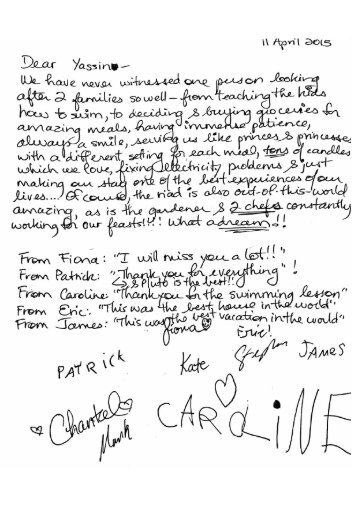 11 April 2015
Dear Yassine –
We have never witnessed one person looking
after 2 families so well – from teaching the kids
how to swim, to deciding & buying groceries for
amazing meals, having immense patience,
always a smile, serving us like princes & princesses
with a different setting for each meal, tons of candles
which we love, fixing electricity problems & just
making our stay one of the best experiences of our
lives.... Of course, the riad is also out-of-this-world
amazing, as is the gardener & 2 chefs constantly
working for our feasts!!! What a dream!!
From Fiona: "I will miss you a lot!!"
From Patrick: "Thank you for everything"!
↳ & Pluto is the best!!
From Caroline: "Thank you for the swimming lesson"
From Eric: "This was the best house in the world"
From James: "This was the best vacation in the world"
Fiona
Eric!
PATRICK
Kate
Stephen
JAMES
Chantal
Mark
CAROLINE